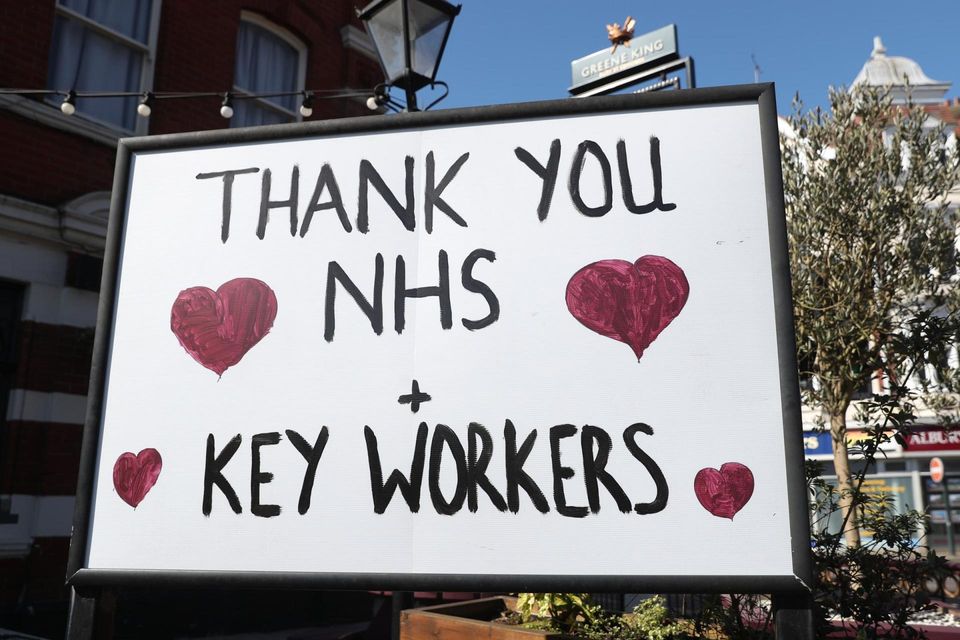 GREENE KING
THANK YOU
NHS
+
KEY WORKERS
ALBURY